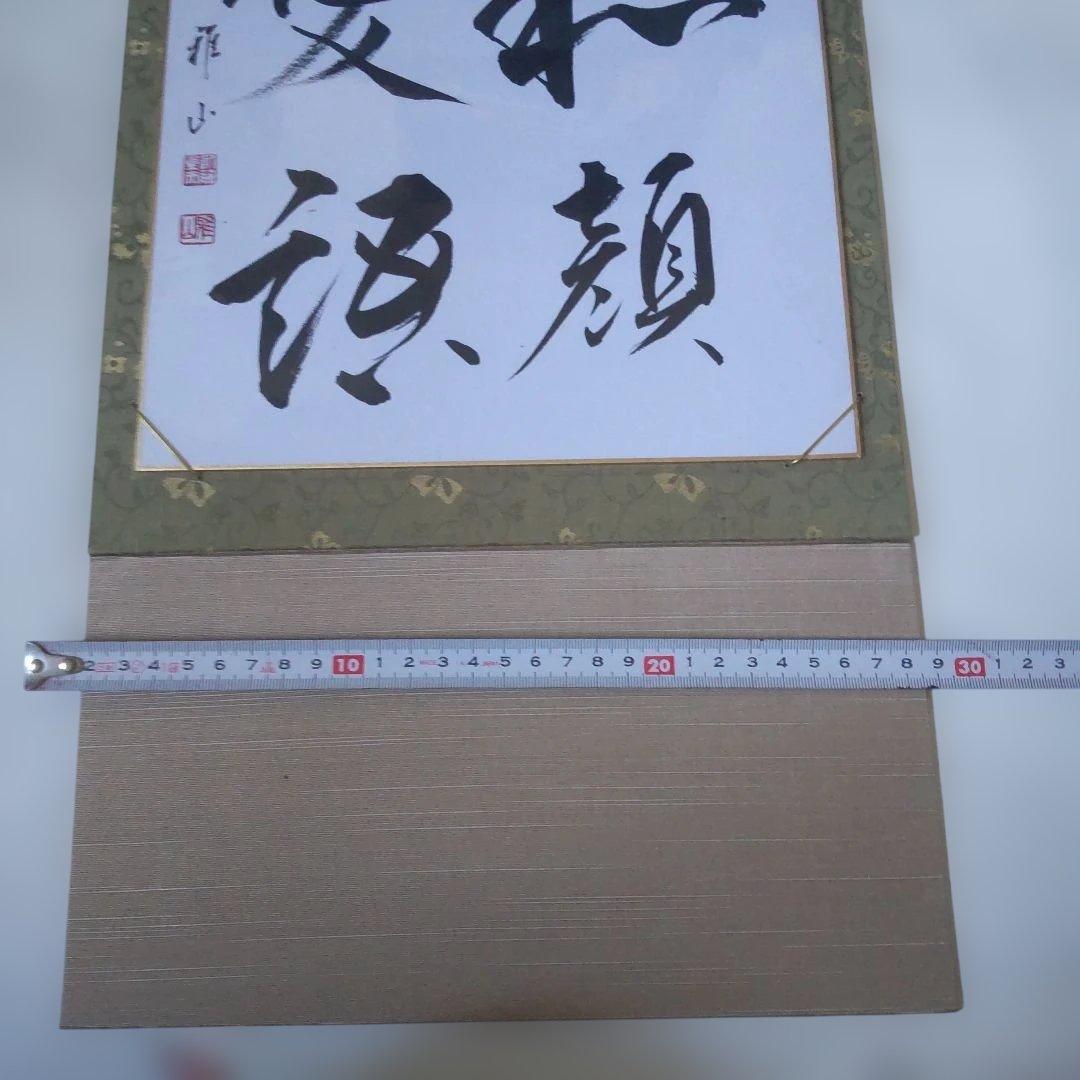 和顔
愛語
雅山
2 3 4 5 6 7 8 9 10 1 2 3 4 5 6 7 8 9 20 1 2 3 4 5 6 7 8 9 30 1 2 3